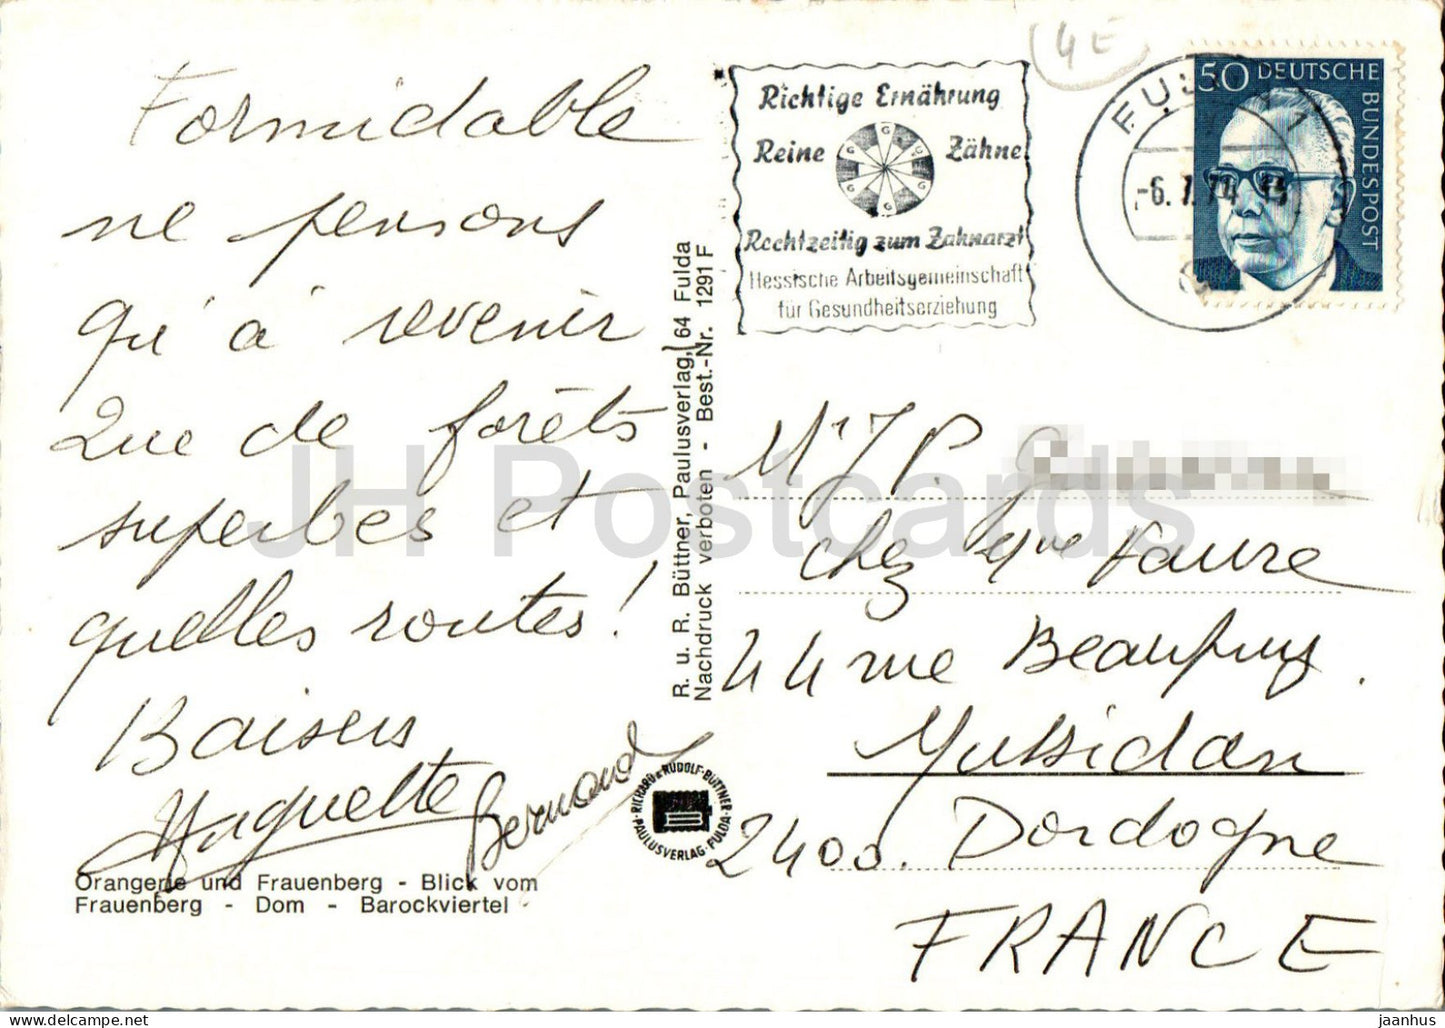 Formidable
ne pensons
qu'à revenir
Que de forêts
superbes et
quelles routes !
Baisers
Huguette
Bernard
Orangerie und Frauenberg - Blick vom
Frauenberg - Dom - Barockviertel
R. u. R. Büttner, Paulusverlag, 64 Fulda
Nachdruck verboten - Best.-Nr. 1291 F
RICHARD & RUDOLF BÜTTNER
PAULUSVERLAG FULDA
4 E
Richtige Ernährung
Reine Zähne
G G G G G
Rechtzeitig zum Zahnarzt
Hessische Arbeitsgemeinschaft
für Gesundheitserziehung
FULDA 1
-6. 7. 74
50 DEUTSCHE
BUNDESPOST
Mr J P. G
chez Mme Faure
44 rue Beaupuy.
Mussidan
2400. Dordogne
FRANCE
JH Postcards
jaanhus